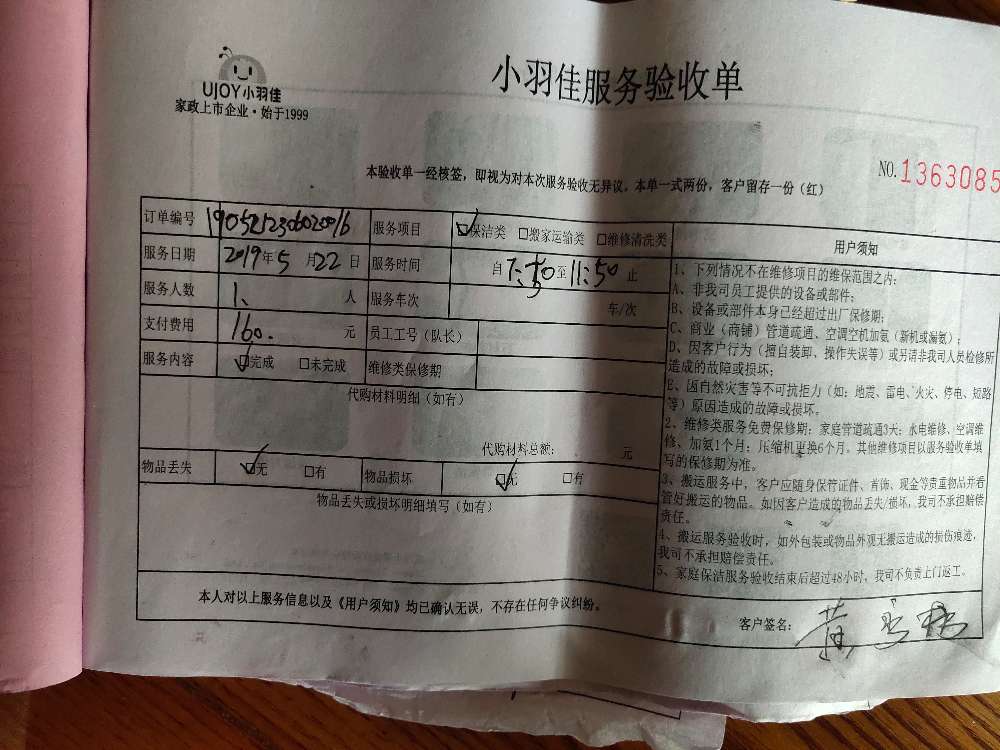 UJOY小羽佳
家政上市企业·始于1999
小羽佳服务验收单
NO.1363085
本验收单一经核签，即视为对本次服务验收无异议，本单一式两份，客户留存一份（红）
订单编号 1905212306020016 服务项目 ☑保洁类 □搬家运输类 □维修清洗类
服务日期 2019年5月22日 服务时间 自7:50至11:50止
服务人数 1、 人 服务车次 车/次
支付费用 160. 元 员工工号（队长）
服务内容 ☑完成 □未完成 维修类保修期
代购材料明细（如有）
代购材料总额： 元
物品丢失 ☑无 □有 物品损坏 ☑无 □有
物品丢失或损坏明细填写（如有）
用户须知
1、下列情况不在维修项目的维保范围之内：
A、非我司员工提供的设备或部件；
B、设备或部件本身已经超过出厂保修期；
C、商业（商铺）管道疏通、空调空机加氨（新机或漏氨）；
D、因客户行为（擅自装卸、操作失误等）或另请非我司人员检修所
造成的故障或损坏；
E、因自然灾害等不可抗拒力（如：地震、雷电、火灾、停电、短路
等）原因造成的故障或损坏。
2、维修类服务免费保修期：家庭管道疏通3天；水电维修、空调维
修、加氨1个月；压缩机更换6个月，其他维修项目以服务验收单填
写的保修期为准。
3、搬运服务中，客户应随身保管证件、首饰、现金等贵重物品并看
管好搬运的物品。如因客户造成的物品丢失/损坏，我司不承担赔偿
责任。
4、搬运服务验收时，如外包装或物品外观无搬运造成的损伤痕迹，
我司不承担赔偿责任。
5、家庭保洁服务验收结束后超过48小时，我司不负责上门返工。
本人对以上服务信息以及《用户须知》均已确认无误，不存在任何争议纠纷。
客户签名： 黄